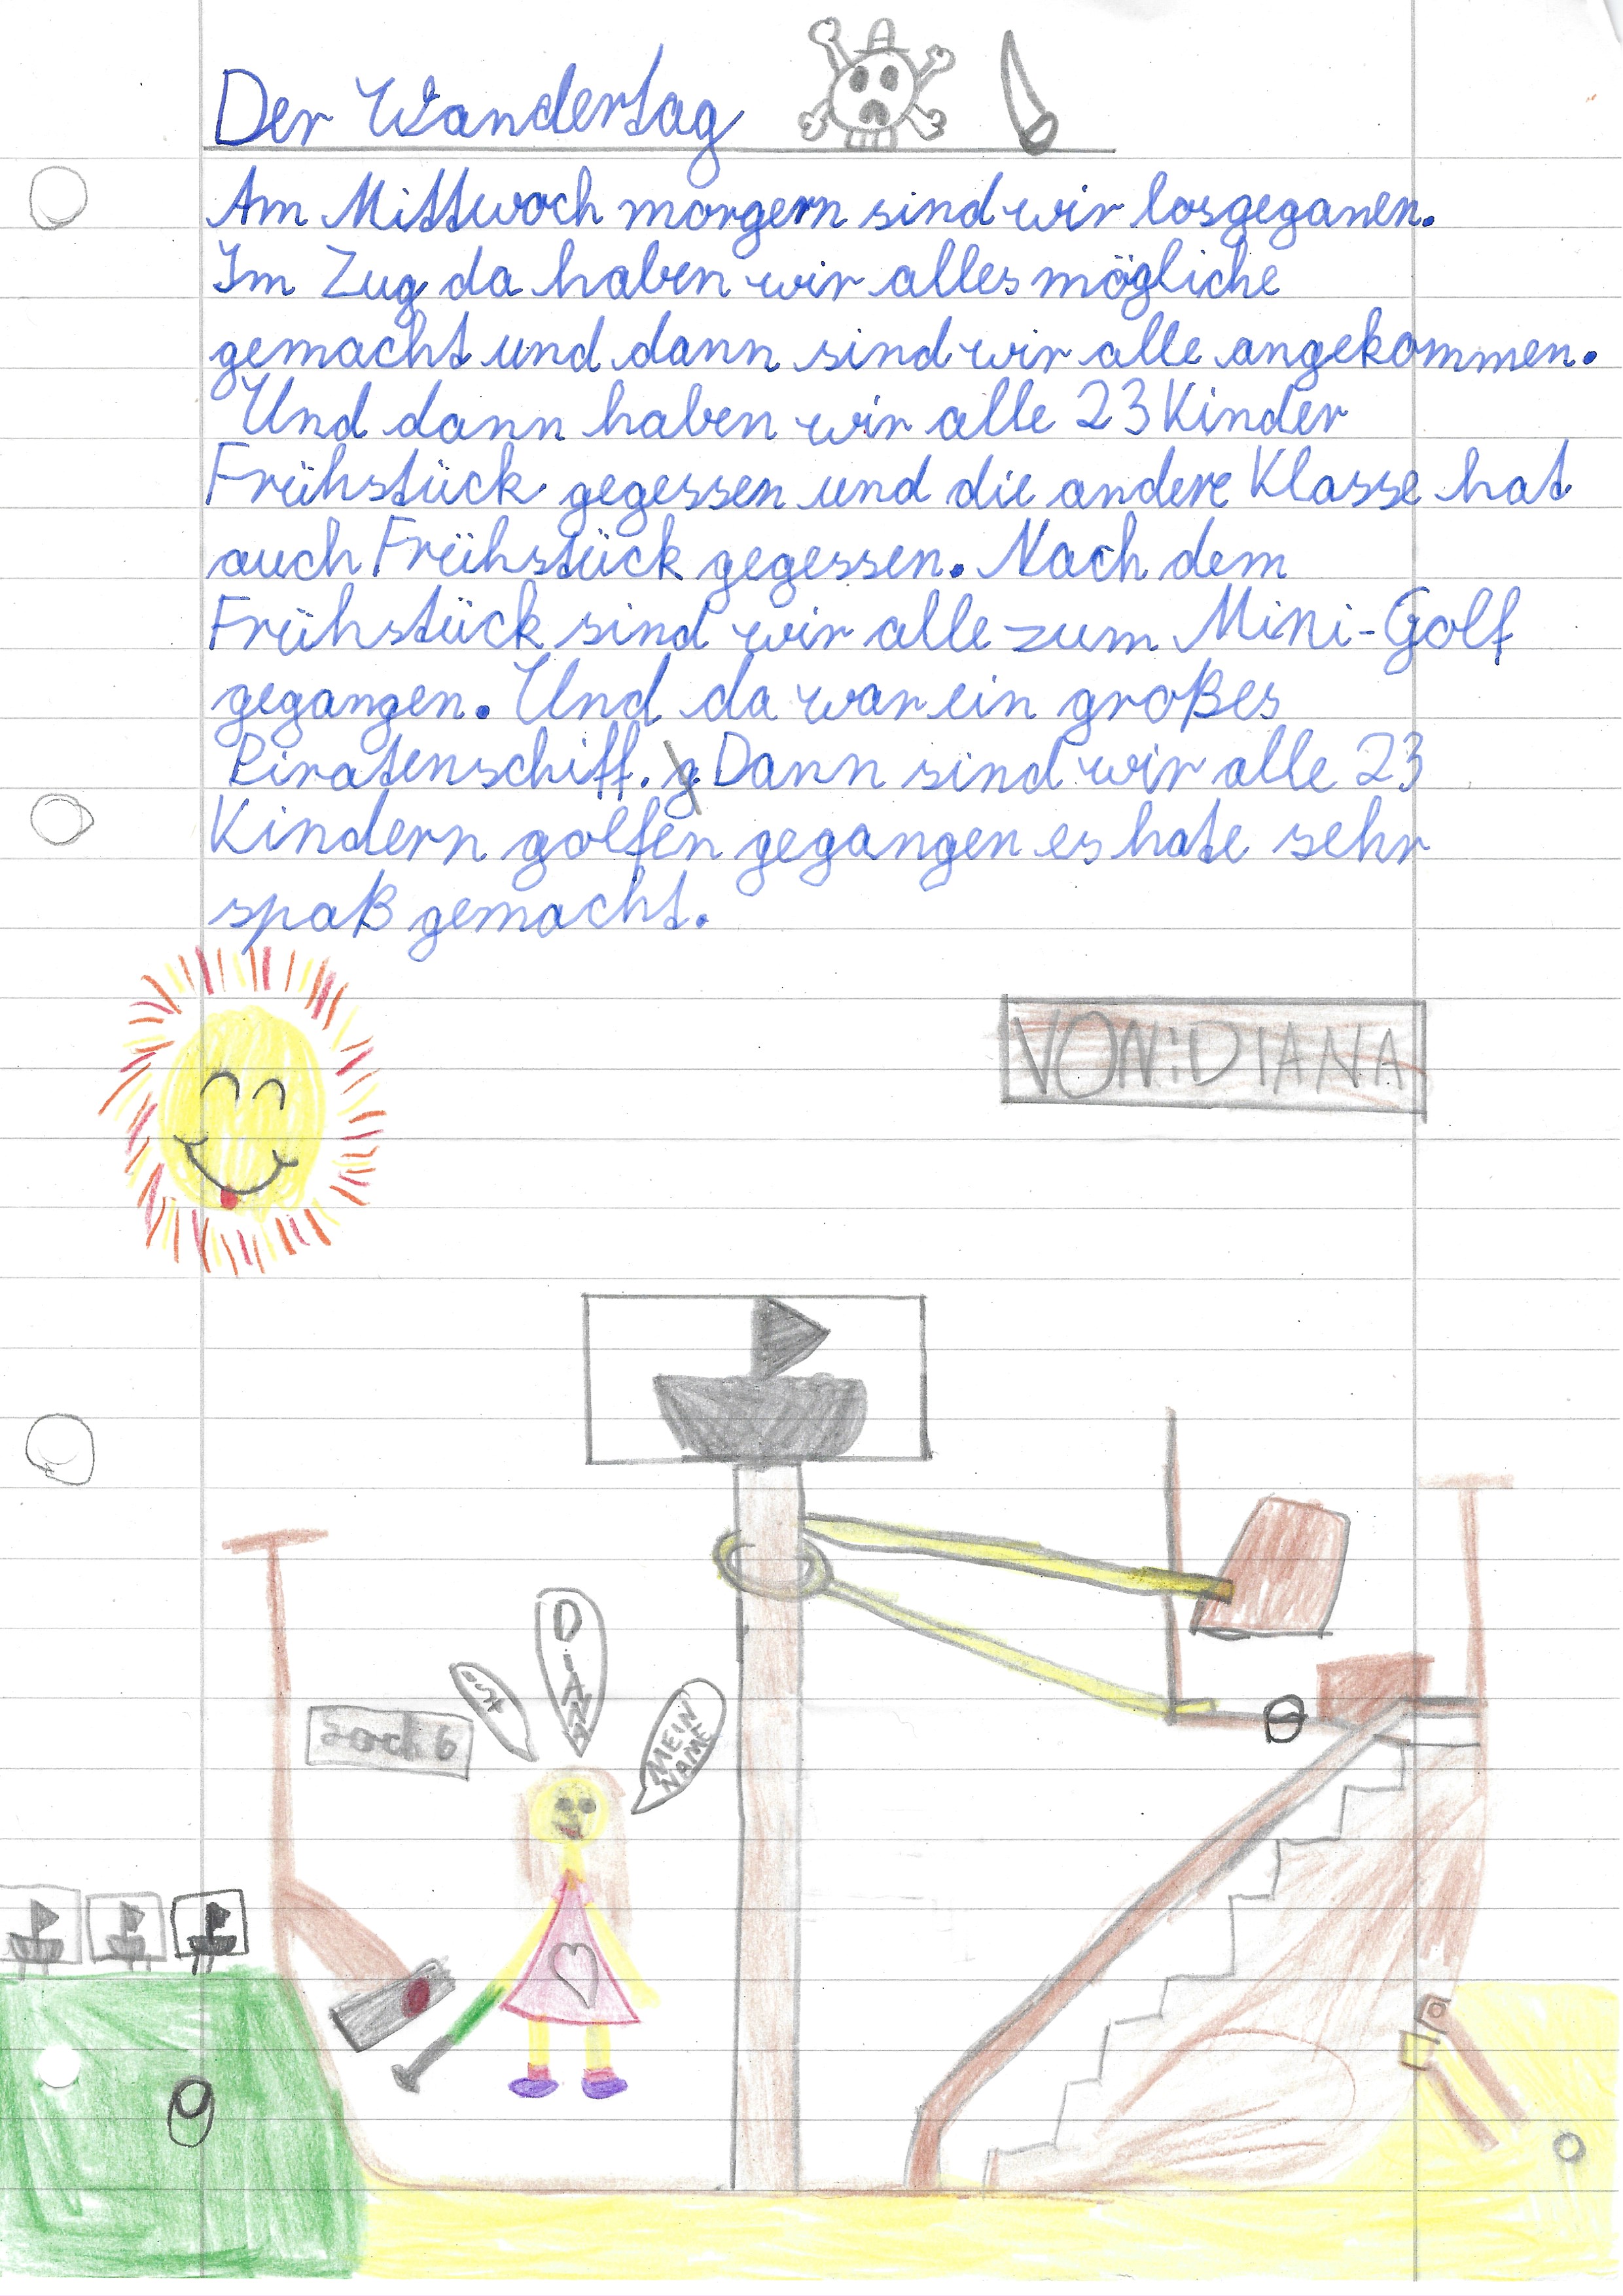 Der Wandertag
Am Mittwoch morgern sind wir losgeganen.
Im Zug da haben wir alles mögliche
gemacht und dann sind wir alle angekommen.
Und dann haben wir alle 23 Kinder
Frühstück gegessen und die andere Klasse hat
auch Frühstück gegessen. Nach dem
Frühstück sind wir alle zum Mini-Golf
gegangen. Und da war ein großes
Piratenschiff. Dann sind wir alle 23
Kindern golfen gegangen es hate sehr
spaß gemacht.
VON:DIANA
MEIN
NAME
ist
DiANA
Loch 6